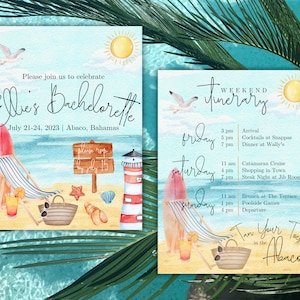 Please join us to celebrate
llie's Bachelorette
July 21-24, 2023 | Abaco, Bahamas
WEEKEND
itinerary
friday
3 pm Arrival
5 pm Cocktails at Snappas
7 pm Dinner at Wally's
saturday
11 am Catamaran Cruise
4 pm Shopping in Town
7 pm Steak Night at Jib Room
sunday
11 am Brunch at The
1 pm Poolside Games
4 pm Departure
in the
Abaco